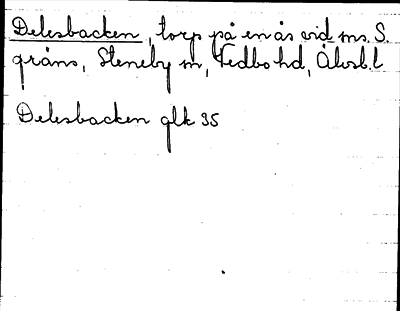 Delesbacken, torp på en ås vid ms. S.
gräns, Steneby sn, Vedbo hd, Älvsb. l
Delesbacken glk 35